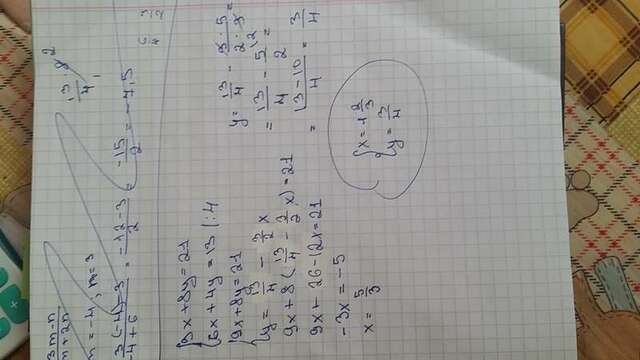 3m-n
m+2n
m = -4 ; n = 3
3(-4)-3 / -4+6 = -12-3 / 2 = -15 / 2 = -7,5
13/4 · 8 2
1
{9x+8y=21
{6x+4y=13 |:4
{9x+8y=21
{y = 13/4 - 3/2 x
9x+8(13/4 - 3/2 x) = 21
9x+26-12x=21
-3x = -5
x = 5/3
y = 13/4 - 3·5 / 2·3 =
= 13/4 - 5/2 \2 =
= 13-10 / 4 = 3/4
{x = 1 2/3
{y = 3/4